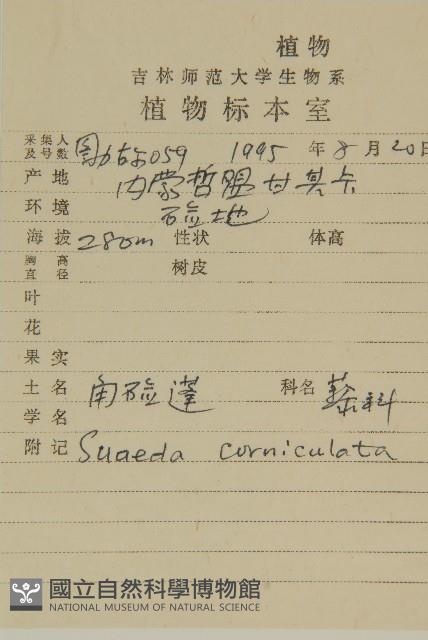 植物
吉林师范大学生物系
植物标本室
采集人及号数 059 1995 年 8 月 20日
产地 内蒙哲盟甘其卡
环境 硷地
海拔 280m 性状 体高
胸高直径 树皮
叶
花
果实
土名 角硷蓬 科名 藜科
学名
附记 Suaeda corniculata
國立自然科學博物館
NATIONAL MUSEUM OF NATURAL SCIENCE